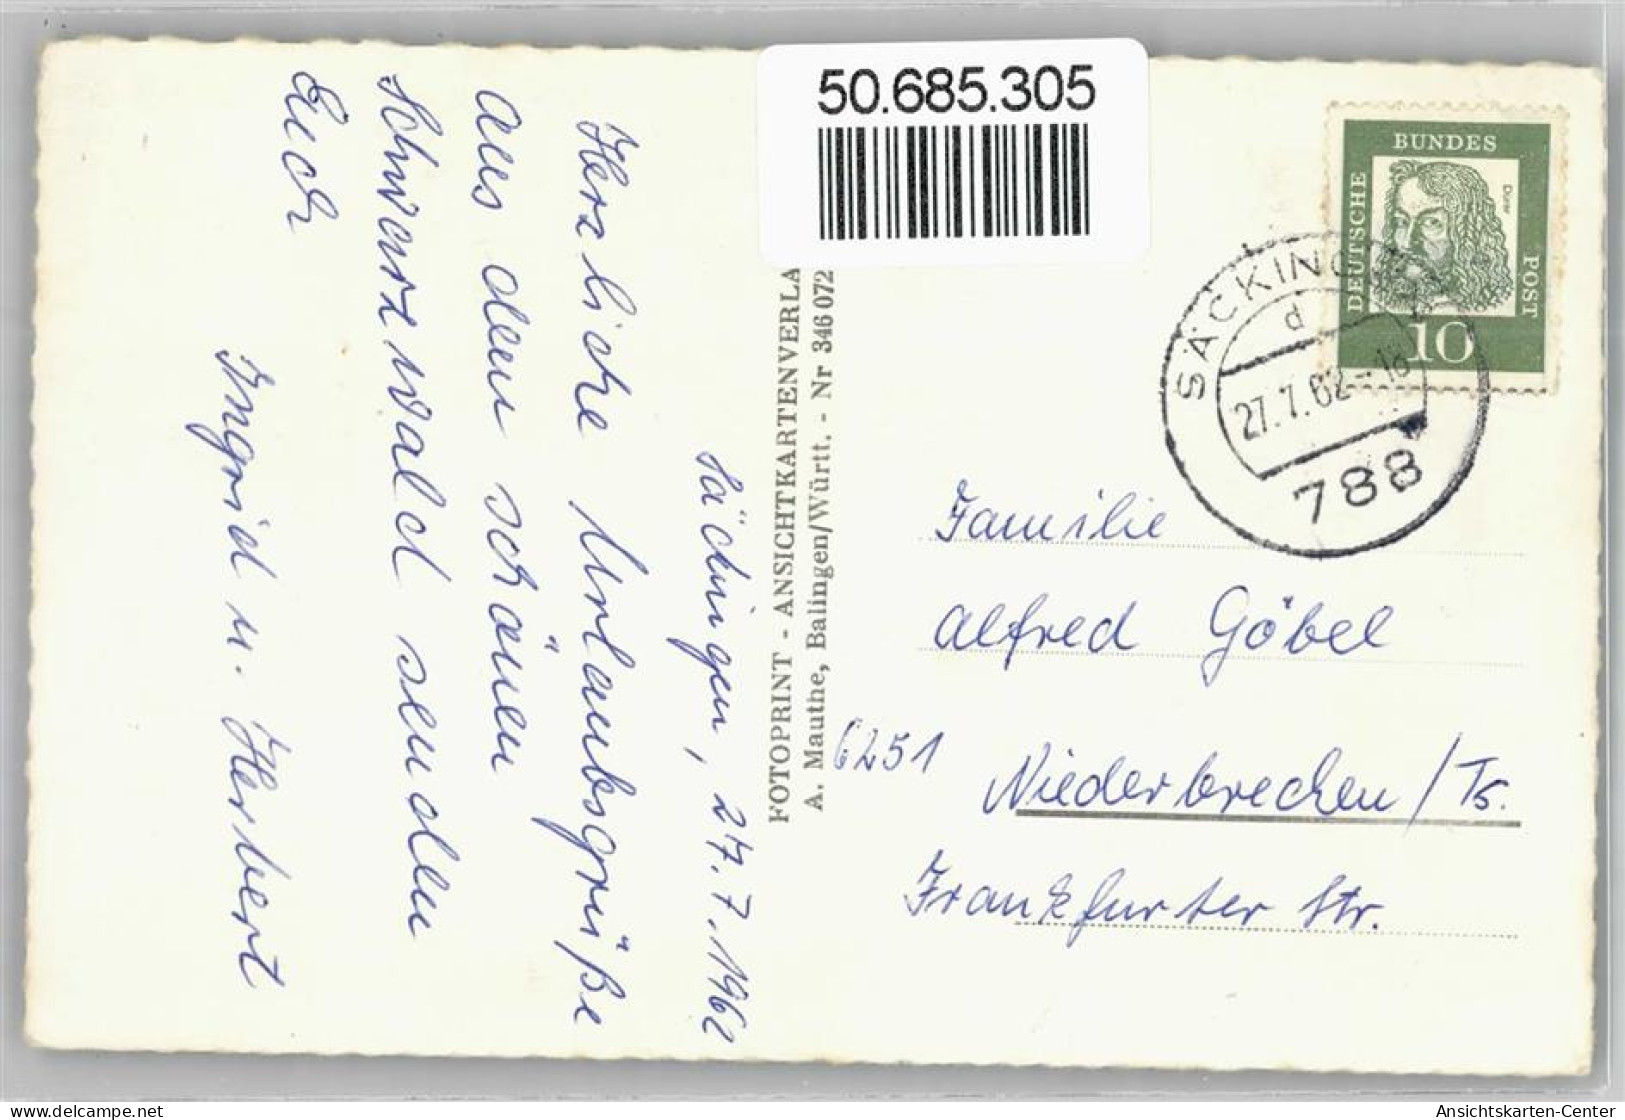 50.685.305
Säckingen, 27.7.1962
Herzliche Urlaubsgrüße
aus dem schönen
Schwarzwald senden
Euch
Ingrid u. Herbert
FOTOPRINT - ANSICHTKARTENVERLA
A. Mauthe, Balingen/Württ. - Nr 346 072
DEUTSCHE
BUNDES
POST
Dürer
10
SÄCKINGEN
d
27.7.62-16
788
Familie
Alfred Göbel
6251 Niederbrechen/Ts.
Frankfurter Str.
Ansichtskarten-Center